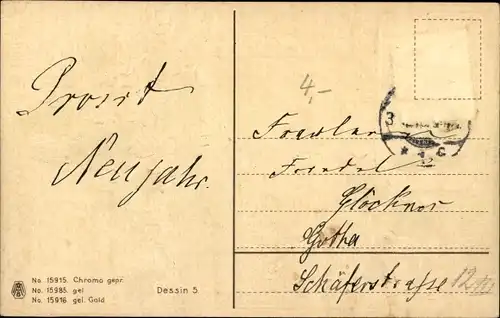 Prosit
Neujahr.
No. 15915. Chromo gepr.
No. 15985. gel
No. 15916. gel. Gold
Dessin 5
4,-
3
* a C
Fräulein
Friedel
Glöckner
Gotha
Schäferstraße 12 III